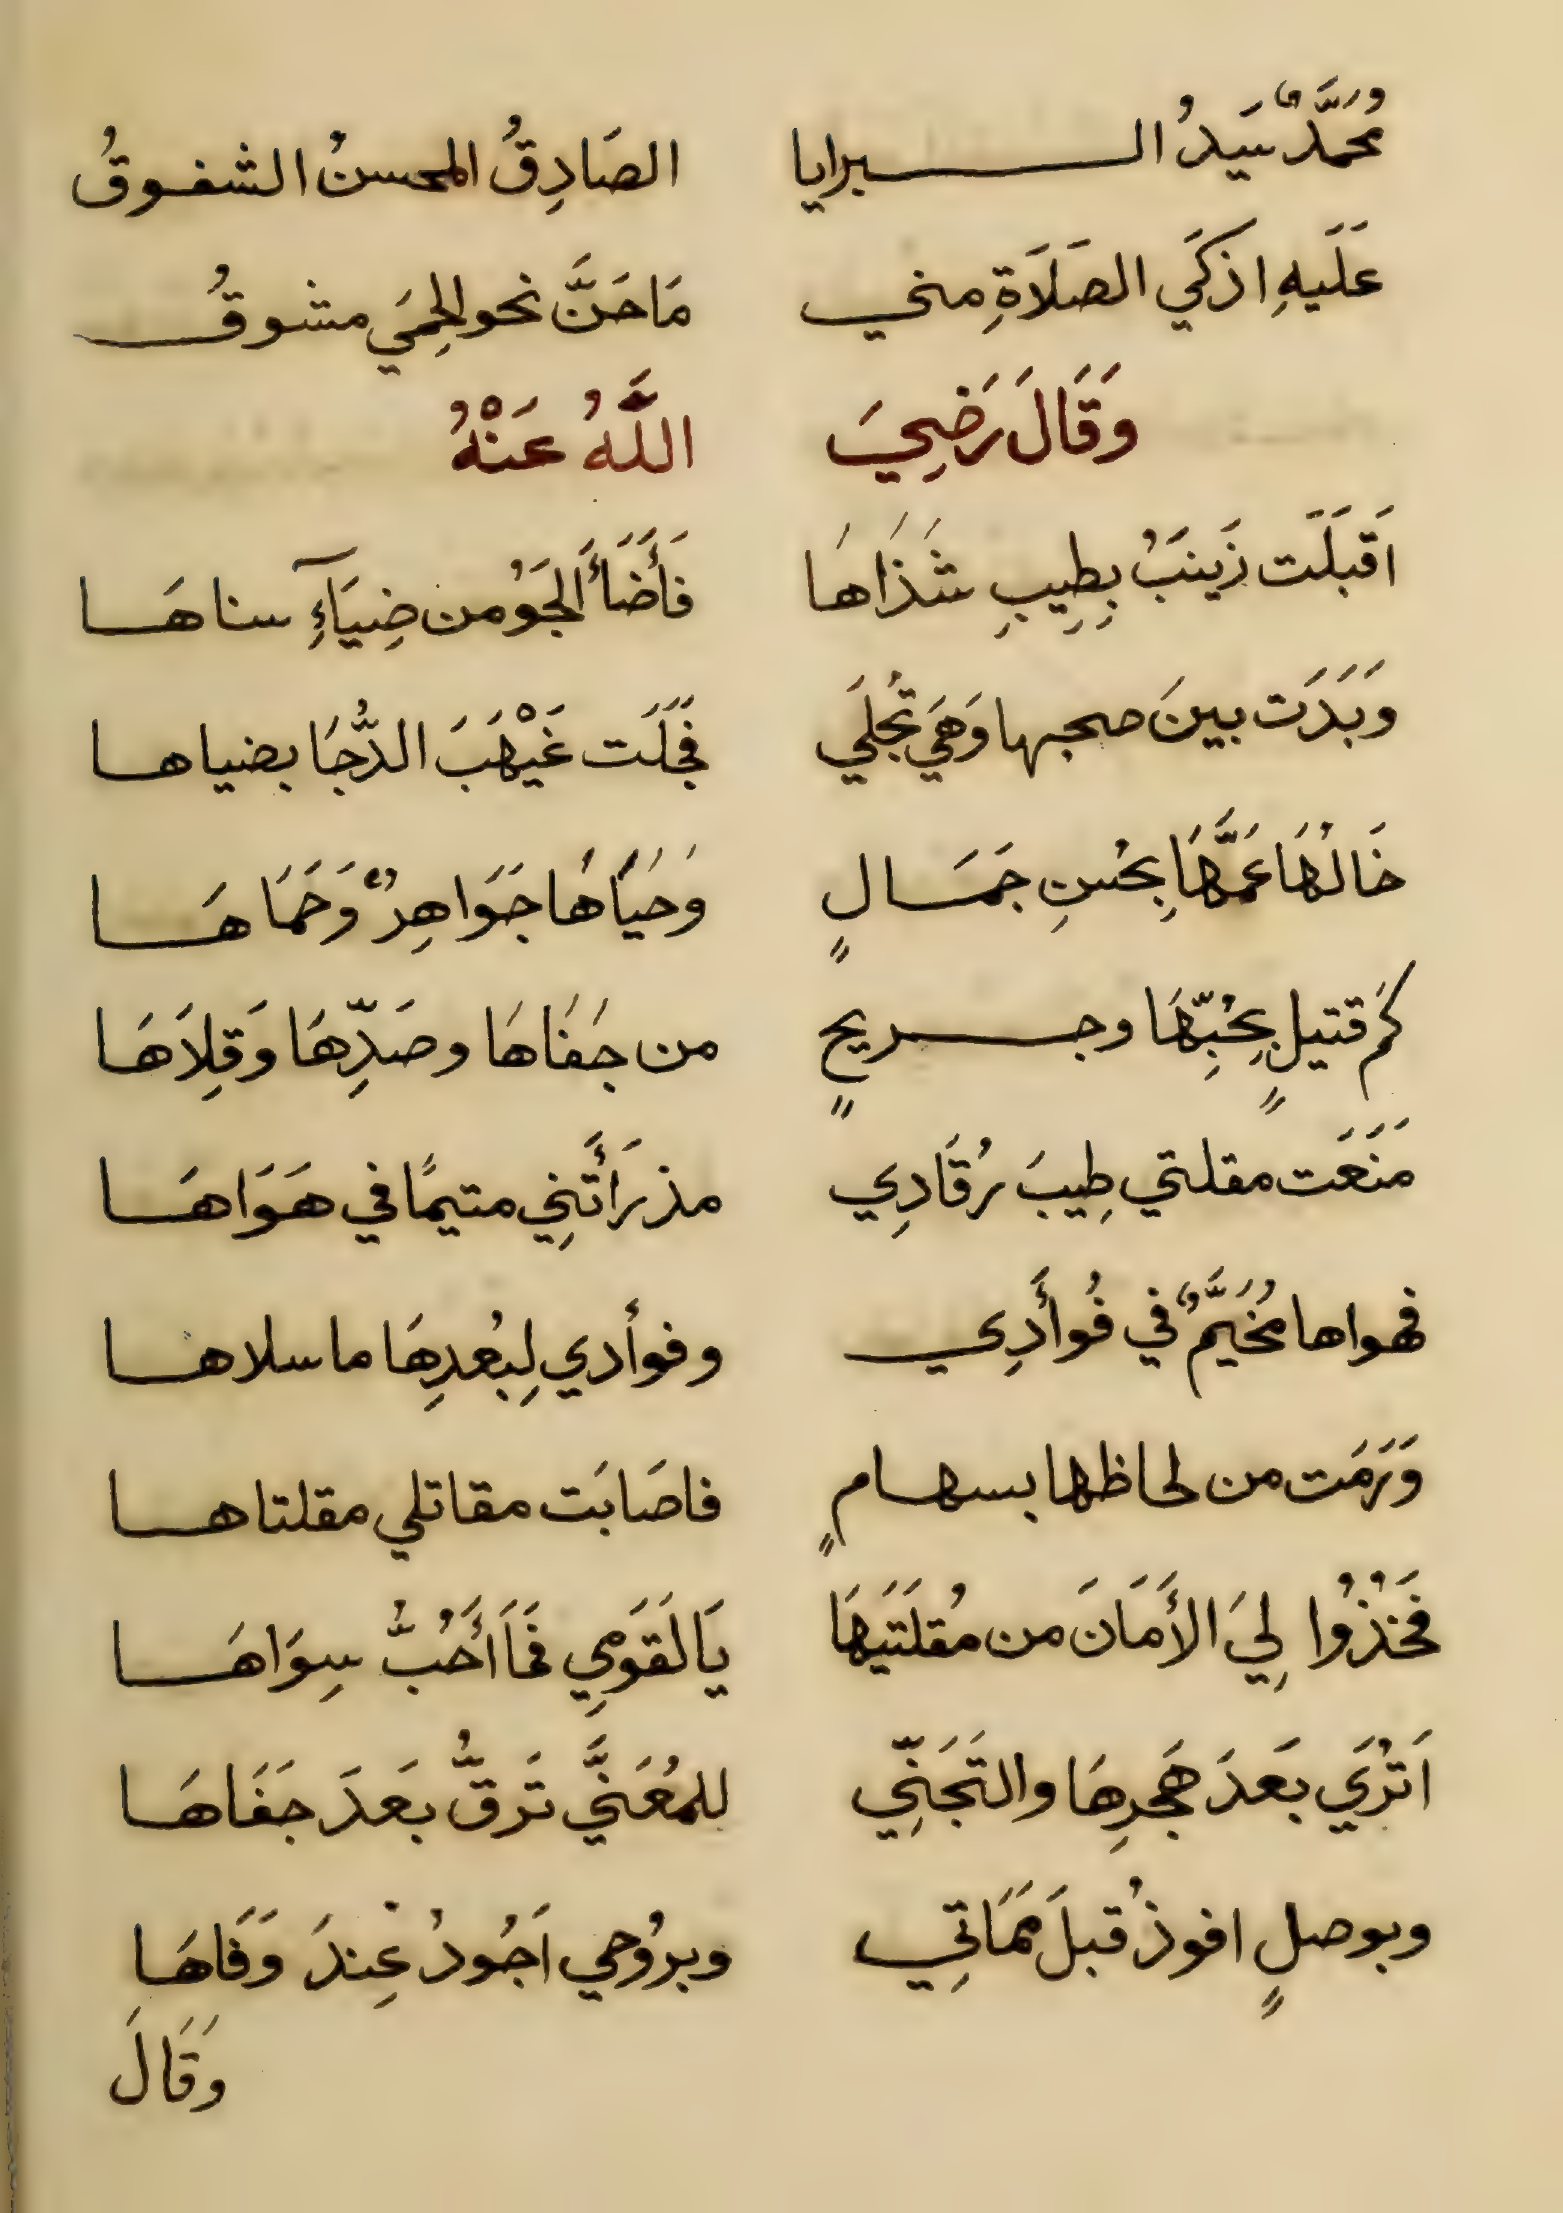 مُحَمَّدٌ سَيدُ البرايا الصَادِقُ المحسنُ الشفوقُ
عَلَيهِ اذكَي الصَلَاةِ مني مَا حَنَّ نحو الحِمَي مشوقُ
وَقَالَ رَضِيَ اللَّهُ عَنْهُ
اَقبَلَت زَينَبُ بِطِيبِ شَذَاهَا فَأَضَأَ الجَوُ من ضِيَآءِ سناهَا
وَبَدَت بينَ صحبها وَهَيَ تُجلَي فَجَلَت غَيْهَبَ الدُّجَا بضياها
خَالُهَا عَمَّهَا بِحُسنِ جَمَالٍ وَحَيَاهَا جَوَاهِرٌ وَحَمَاهَا
كَم قتيلٍ بِحُبِّهَا وجريحٍ من جَفَاهَا وصَدِّهَا وَقِلَاهَا
مَنَعَت مقلتي طِيبَ رُقَادِي مذ رَأَتنِي متيمًا في هَوَاهَا
فهواها مُخَيَّمٌ في فُوأَدِي وفوأدي لِبُعدِهَا ما سلاها
وَرَمَت من لحاظها بسهامٍ فاصَابَت مقاتلي مقلتاها
فَخُذُوا لِيَ الأَمَانَ من مُقلَتَيهَا يَا لَقَومِي فَمَا أَحُبُّ سِوَاهَا
اَتُرَي بَعدَ هَجرِهَا والتَجَنِّي للمُعَنَّي تَرقُّ بَعَدَ جَفَاهَا
وبوصلٍ افوذُ قبلَ مَمَاتِي وبرُوحي اَجُودُ عِندَ وَفَاهَا
وَقَالَ